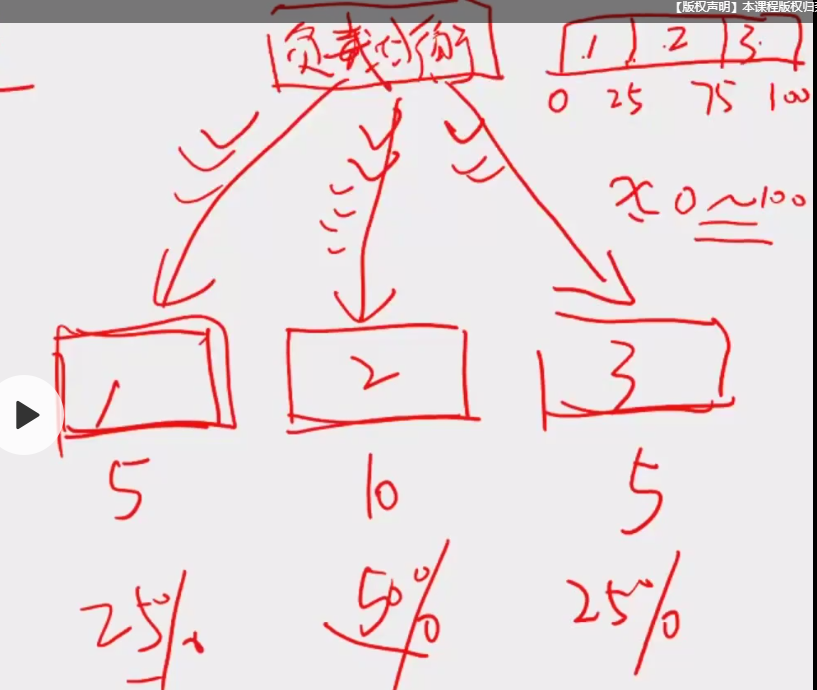 【版权声明】本课程版权归
负载均衡
1 2 3
0 25 75 100
x 0~100
1 2 3
5 10 5
25% 50% 25%